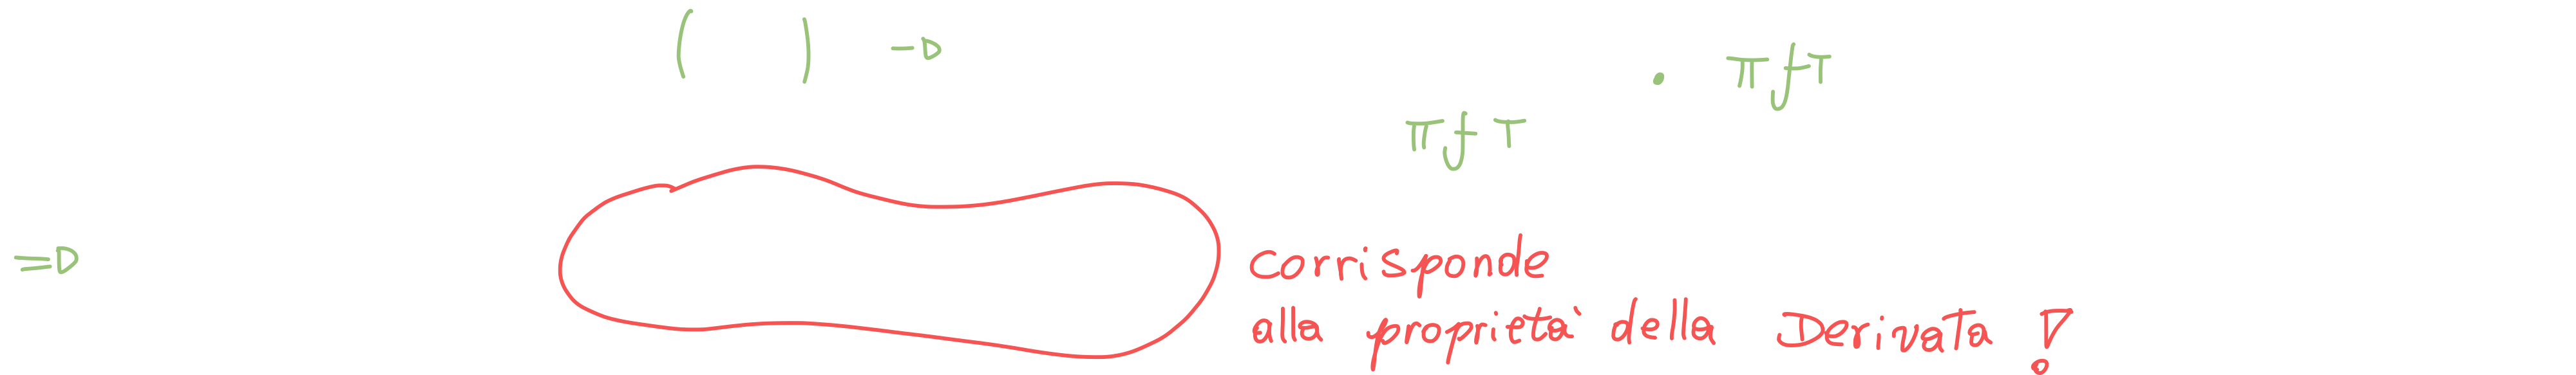 ( ) → · π f T
π f T
⇒ corrisponde
alla propietà della Derivata !